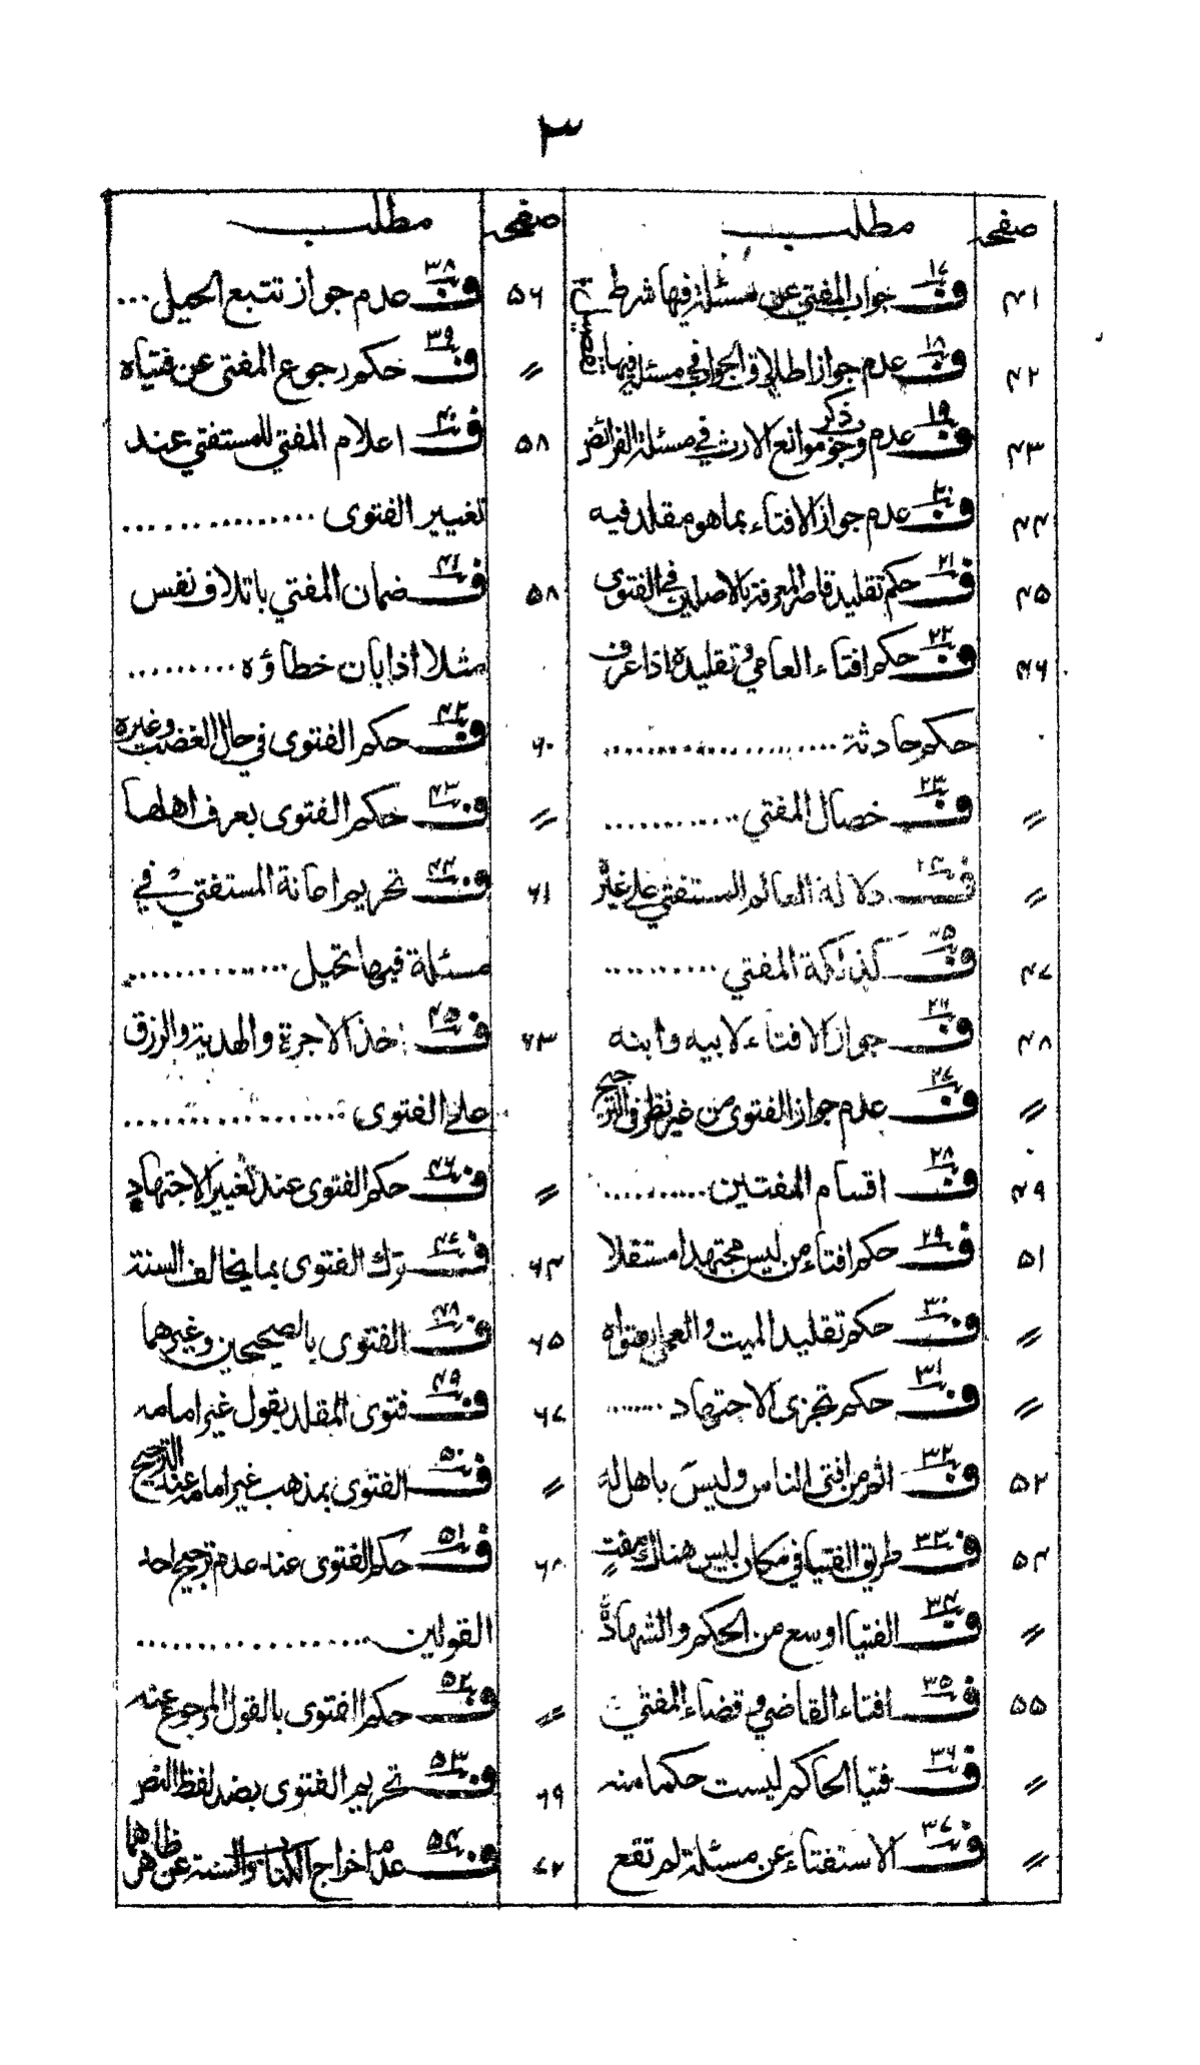 ٣
صفحہ مطلب
٤١ ف١٧ جواب المفتي عن مسئلة فيها شرط
٤٢ ف١٨ عدم جواز اطلاق الجواب في مسئلة فيها تفصيل
٤٣ ف١٩ عدم وجوب ذكر موانع الارث في مسئلة الفرائض
٤٤ ف٢٠ عدم جواز الافتاء بما هو مقلد فيه
٤٥ ف٢١ حكم تقليد قاصر المعرفة بالاصلين في الفتوى
٤٦ ف٢٢ حكم افتاء العامي وتقليده اذا عرف
حكم حادثة ....................
〃 ف٢٣ خصال المفتي ............
〃 ف٢٤ دلالة العالم المستفتي على غيره
٤٧ ف٢٥ كذلكة المفتي ..........
٤٨ ف٢٦ جواز الافتاء لابيه وابنه
〃 ف٢٧ عدم جواز الفتوى من غير نظر في الترجيح
٤٩ ف٢٨ اقسام المفتين ..........
٥١ ف٢٩ حكم افتاء من ليس مجتهدا مستقلا
〃 ف٣٠ حكم تقليد الميت والعمل بفتواه
〃 ف٣١ حكم تجزى الاجتهاد .......
٥٢ ف٣٢ اثم من افتى الناس وليس باهل له
٥٤ ف٣٣ طريق الفتيا في مكان ليس هناك مفت
〃 ف٣٤ الفتيا اوسع من الحكم والشهادة
٥٥ ف٣٥ افتاء القاضي وقضاء المفتي
〃 ف٣٦ فتيا الحاكم ليست حكما منه
〃 ف٣٧ الاستفتاء عن مسئلة لم تقع
صفحہ مطلب
٥٦ ف٣٨ عدم جواز تتبع الحيل ...
〃 ف٣٩ حكم رجوع المفتى عن فتياه
٥٨ ف٤٠ اعلام المفتي للمستفتي عند
تغيير الفتوى ...............
٥٨ ف٤١ ضمان المفتي باتلاف نفس
مثلا اذا بان خطاؤه .........
٦٠ ف٤٢ حكم الفتوى في حال الغضب وغيره
〃 ف٤٣ حكم الفتوى بعرف اهلها
٦١ ف٤٤ تحريم اعانة المستفتي في
مسئلة فيها تحيل .............
٦٣ ف٤٥ اخذ الاجرة والهدية والرزق
على الفتوى .................
〃 ف٤٦ حكم الفتوى عند تغيير الاجتهاد
٦٤ ف٤٧ ترك الفتوى بما يخالف السنة
٦٥ ف٤٨ الفتوى بالصحيحين وغيرهما
٦٧ ف٤٩ فتوى المقلد بقول غير امامه
〃 ف٥٠ الفتوى بمذهب غير امامه عند الترجيح
٦٨ ف٥١ حكم الفتوى عند عدم ترجيح احد
القولين .................
〃 ف٥٢ حكم الفتوى بالقول المرجوع عنه
٦٩ ف٥٣ تحريم الفتوى بضد لفظ النص
٧٢ ف٥٤ عدم اخراج الكتاب والسنة عن ظاهرهما